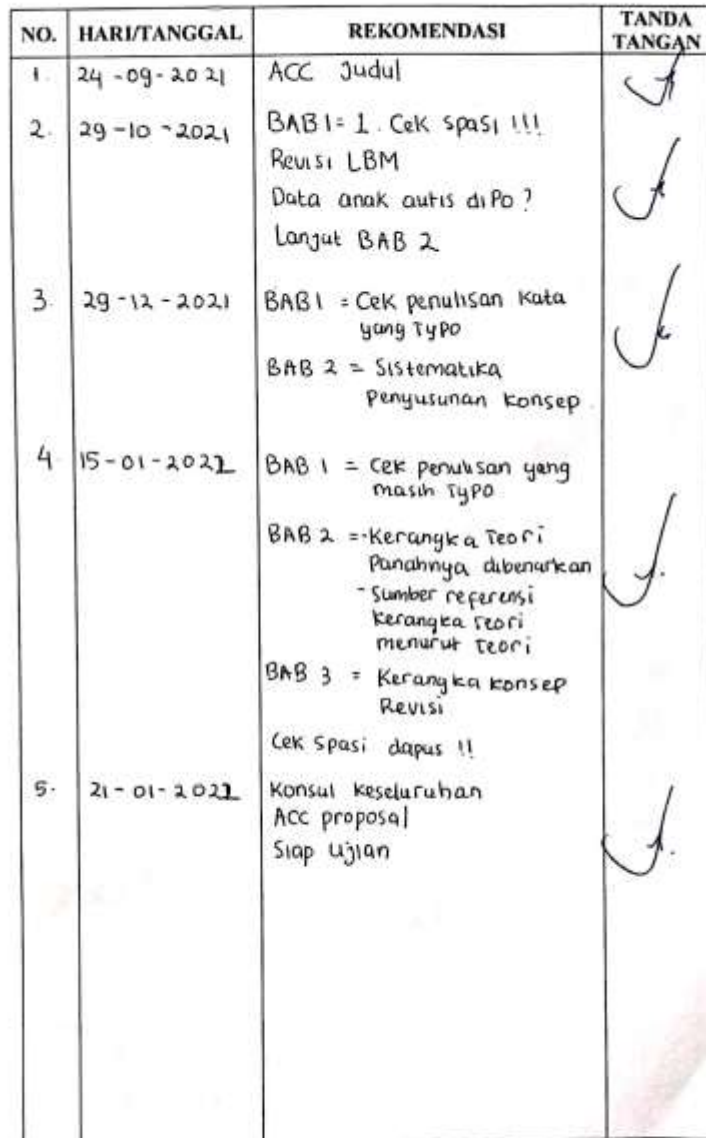 NO. HARI/TANGGAL REKOMENDASI TANDA TANGAN
1. 24-09-2021 ACC Judul
2. 29-10-2021 BAB 1 = 1. Cek spasi !!!
Revisi LBM
Data anak autis di Po ?
Lanjut BAB 2
3. 29-12-2021 BAB 1 = Cek penulisan kata
yang Typo
BAB 2 = Sistematika
Penyusunan konsep.
4. 15-01-2022 BAB 1 = Cek penulisan yang
masih Typo
BAB 2 = -Kerangka Teori
Panahnya dibenarkan
-Sumber referensi
kerangka teori
menurut Teori
BAB 3 = Kerangka konsep
Revisi
Cek spasi dapus !!
5. 21-01-2022 Konsul keseluruhan
ACC proposal
Siap Ujian